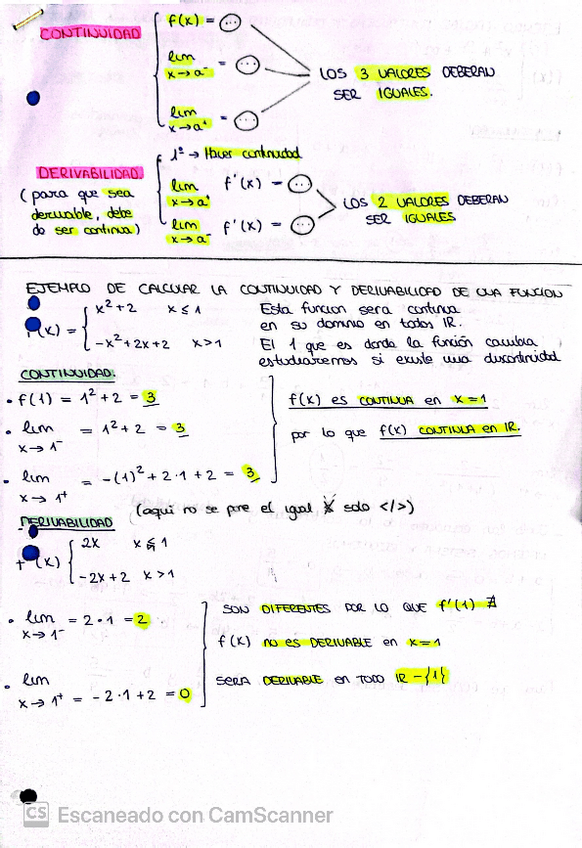 CONTINUIDAD
f(x) = ...
lim x→a⁻ = ...
lim x→a⁺ = ...
LOS 3 VALORES DEBERAN
SER IGUALES.
DERIVABILIDAD
(para que sea
derivable, debe
de ser continua)
1º → Haver continuidad
lim x→a⁺ f'(x) = ...
lim x→a⁻ f'(x) = ...
LOS 2 VALORES DEBERAN
SER IGUALES
EJEMPLO DE CALCULAR LA CONTINUIDAD Y DERIVABILIDAD DE UNA FUNCION
f(x) = { x²+2 x ≤ 1
-x²+2x+2 x>1
Esta funcion sera continua
en su dominio en todos IR.
El 1 que es donde la función cambia
estudiaremos si existe una discontinuidad
CONTINUIDAD:
• f(1) = 1²+2 = 3
• lim x→1⁻ = 1²+2 = 3
• lim x→1⁺ = -(1)²+2·1+2 = 3
f(x) es CONTINUA en x=1
por lo que f(x) CONTINUA en IR.
DERIVABILIDAD
(aqui no se pone el igual solo </>)
(x) { 2x x ≤ 1
-2x+2 x>1
• lim x→1⁻ = 2·1 = 2
• lim x→1⁺ = -2·1+2 = 0
SON DIFERENTES POR LO QUE f'(1) ∄
f(x) no es DERIVABLE en x=1
SERA DERIVABLE en TODO IR-{1}
CS Escaneado con CamScanner